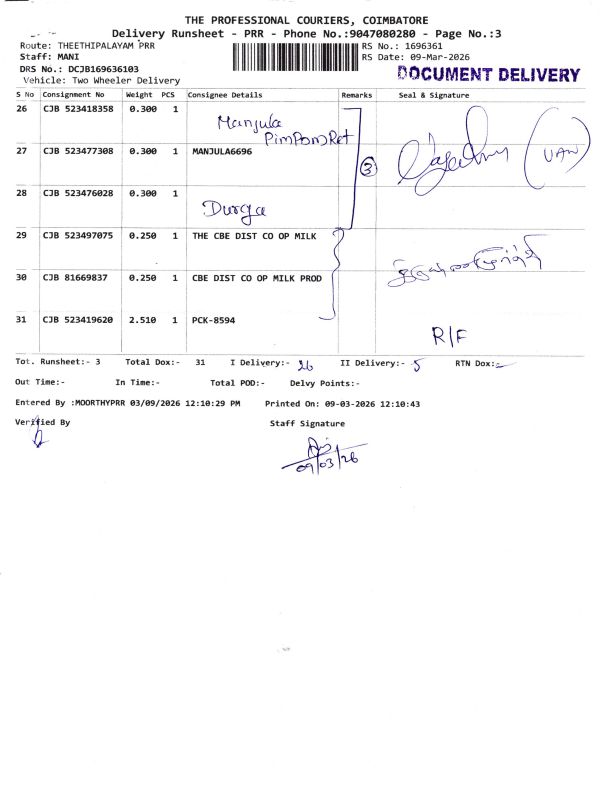 THE PROFESSIONAL COURIERS, COIMBATORE
Delivery Runsheet - PRR - Phone No.:9047080280 - Page No.:3
Route: THEETHIPALAYAM PRR
RS No.: 1696361
Staff: MANI
RS Date: 09-Mar-2026
DRS No.: DCJB169636103
DOCUMENT DELIVERY
Vehicle: Two Wheeler Delivery
S No Consignment No Weight PCS Consignee Details Remarks Seal & Signature
26 CJB 523418358 0.300 1
Manjula
27 CJB 523477308 0.300 1 MANJULA6696
3
(VAN)
28 CJB 523476028 0.300 1
Durga
29 CJB 523497075 0.250 1 THE CBE DIST CO OP MILK
30 CJB 81669837 0.250 1 CBE DIST CO OP MILK PROD
31 CJB 523419620 2.510 1 PCK-8594
R/F
Tot. Runsheet:- 3 Total Dox:- 31 I Delivery:- 26 II Delivery:- 5 RTN Dox:-
Out Time:- In Time:- Total POD:- Delvy Points:-
Entered By :MOORTHYPRR 03/09/2026 12:10:29 PM Printed On: 09-03-2026 12:10:43
Verified By Staff Signature
09/03/26